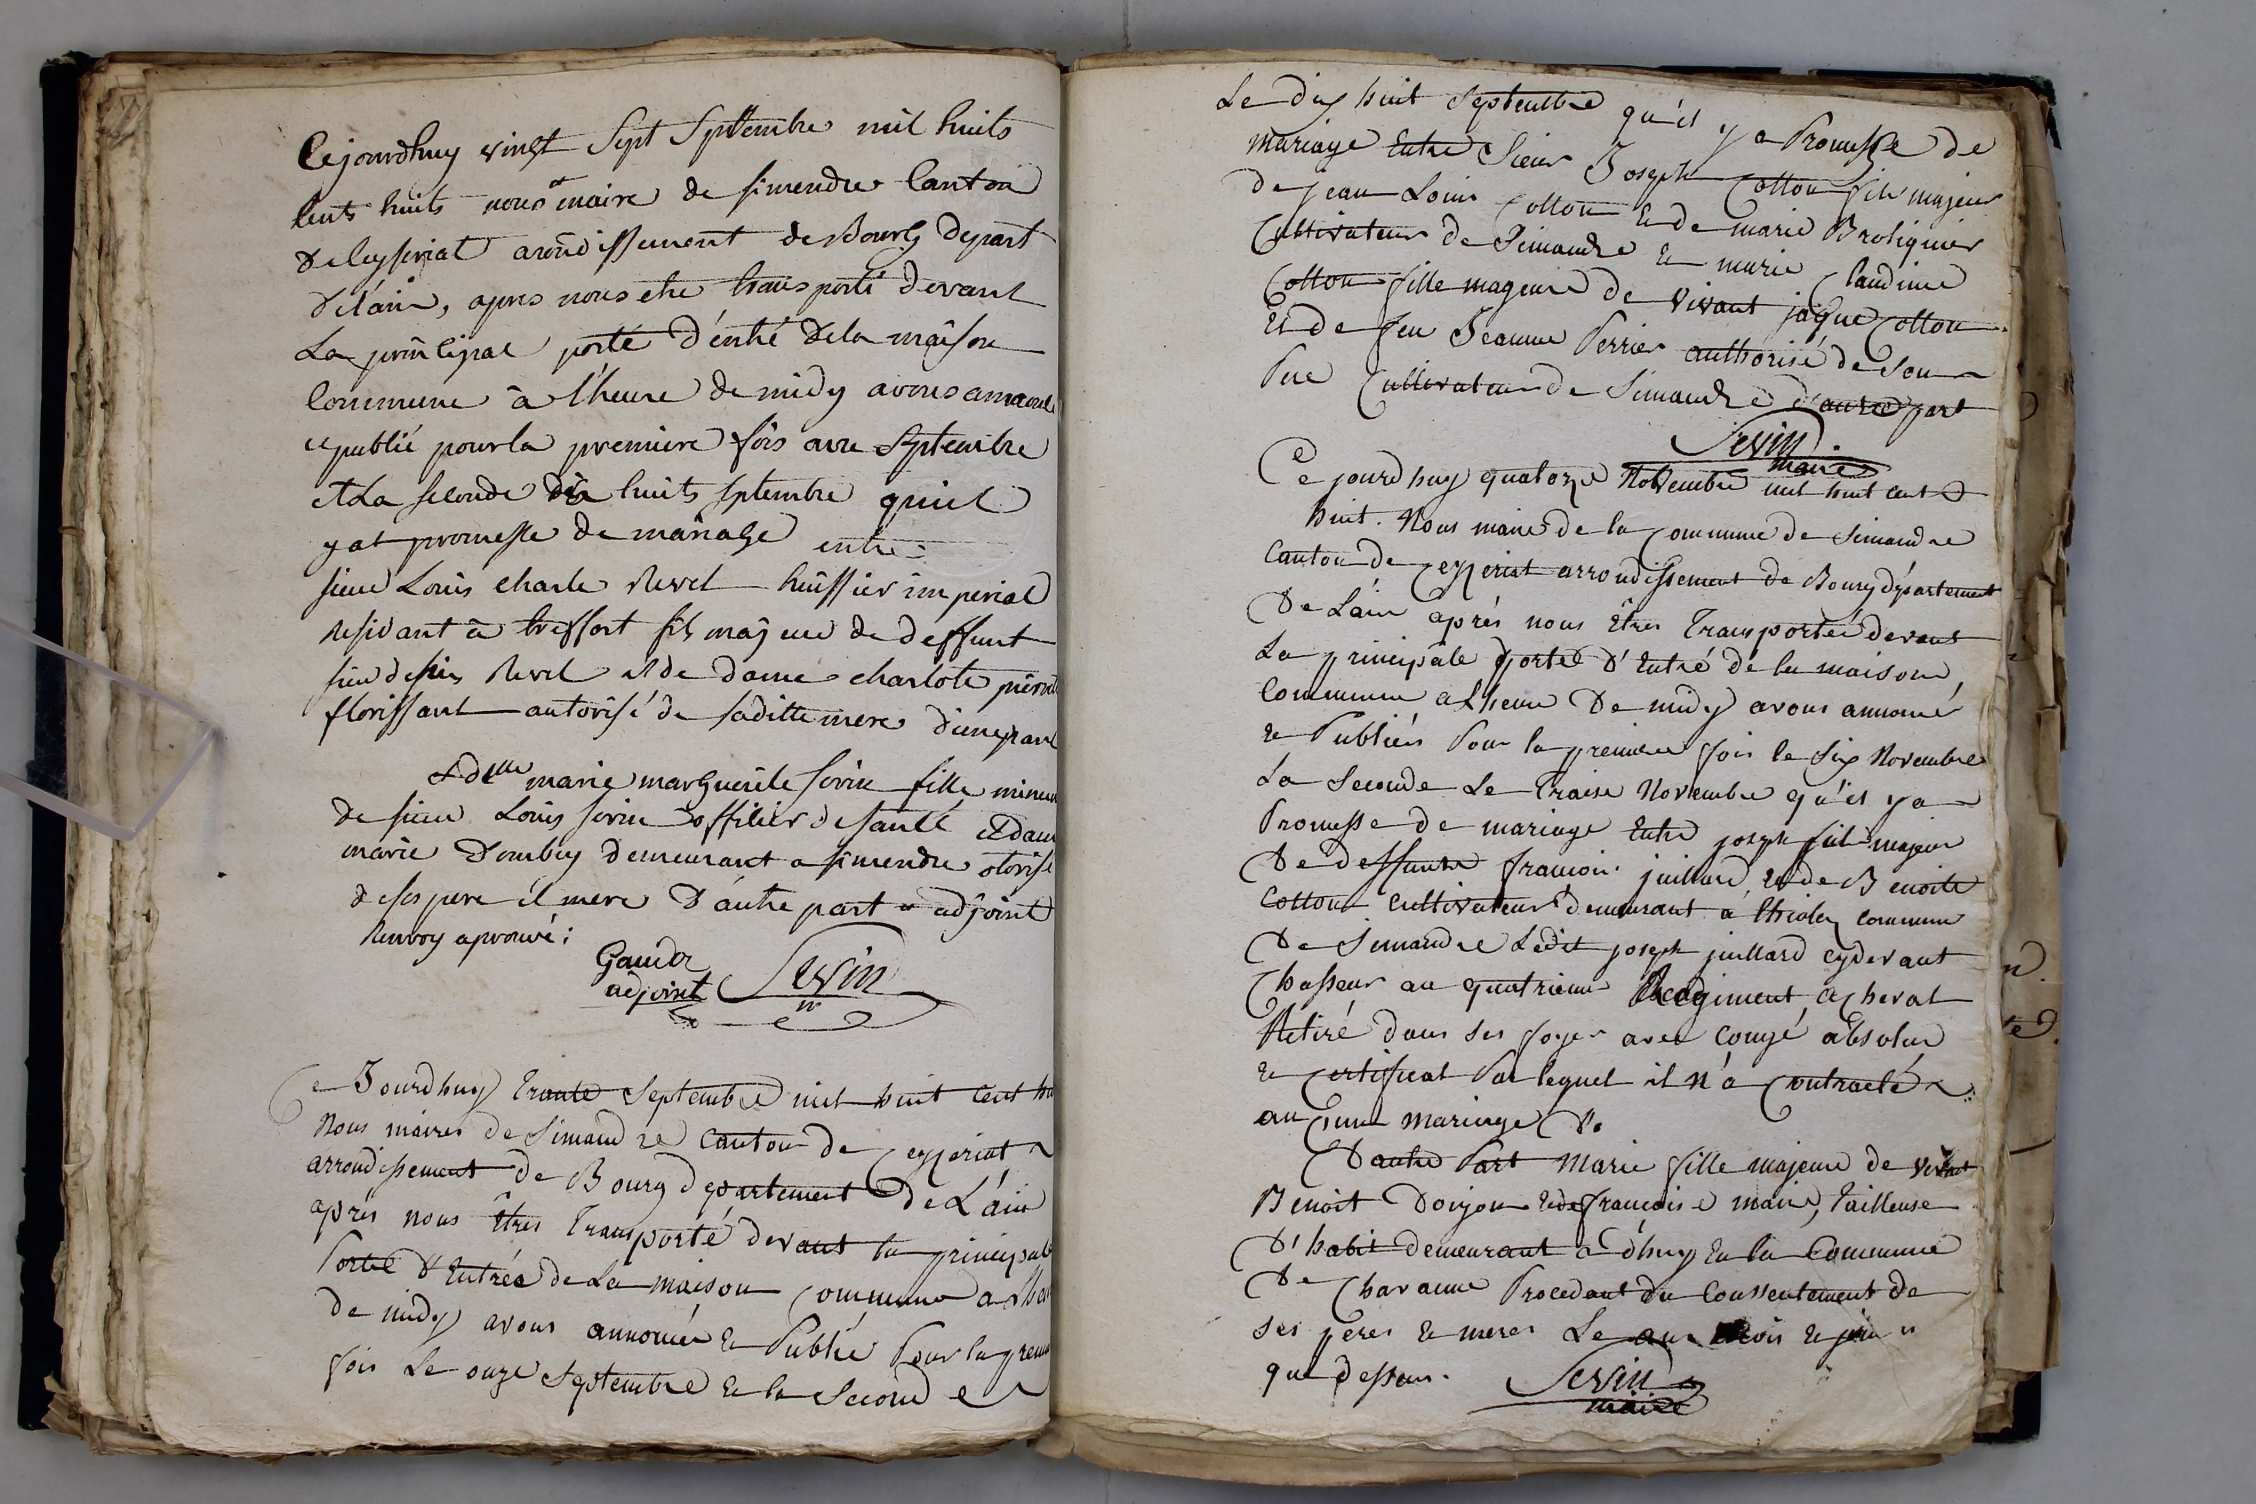 Cejourdhuy vingt sept septembre mil huits
cents huits nous maire de simendre canton
de ceyseriat arondissement de Bourg depart
de lain, apres nous etre transporté devant
La principal porte d'entré de la maison
commune à l'heure de midy avons annoncé
et publié pour la premiere fois onze septembre
et La seconde dix huits septembre quiel
y at promesse de mariage entre
sieur Louis charle Revel huissier imperial
residant à treffort fils majeur de deffunt
sieur Revel et de dame charlote
florissant autorisé de saditte mere d'une part
& dlle marie marguerite sevin fille mineur
de sieur Louis sevin officier de santé et dame
marie Dombey demeurant a simendre otorisé
de ses pere et mere d'autre part " adjoint
Renvoy aprouvé :
Gaudet
adjoint Sevin
m
Ce Jourdhuy trante Septembre mil huit cent hui
Nous maires de Simandre canton de Ceyzeriat
arrondissement de Bourg departement de L'ain
après nous êtres Transporté devant la principale
Porte d'Entrée de La maison commune a Lheur
de midy avons annoncée et Publié Pour la premie
fois Le onze septembre et la Seconde
Le dix huit septembre qu'il y a Promesse de
mariage Entre Sieur Joseph Cotton fils majeur
de jean Louis Cotton Et de marie Brotiquier
Cultivateur de Simandre et marie Claudine
Cotton fille mageure de vivant jaque Cotton
Et de feu Jeanne Perrier authorisé de son
Pere Cultivateur de Simandre d'autre part
Sevin
maire
Ce jourdhuy quatorze Novembre mil huit cent
huit. Nous maire de la Commune de Simandre
canton de Ceyzeriat arrondissement de Bourg département
De Lain après nous êtres Transportée devant
La principale porte d'Entré de la maison
Commune a Lheure De midy avons annoncé
et Publiés Pour la premiere fois le Six Novembre
La Seconde Le Traise Novembre qu'il y a
Promesse de mariage Entre joseph fils majeur
De deffunt francois juillard et de Benoite
Cotton Cultivateur demeurant a commune
De Simandre Ledit joseph juillard cydevant
Chasseur au quatrieme Regiment a cheval
Retiré dans ses foyer avec congé absolue
et Certificat Par lequel il n'a Contracté
aucune mariage &.
D'autre Part Marie fille majeure de vivant
Benoit Donjon et de francoise maire, Tailleuse
D'habit demeurant a dhuy En la Commune
De Chavanne Procedant du Consentement de
Ses peres et meres Le an mois et jour
que dessus.
Sevin
maire